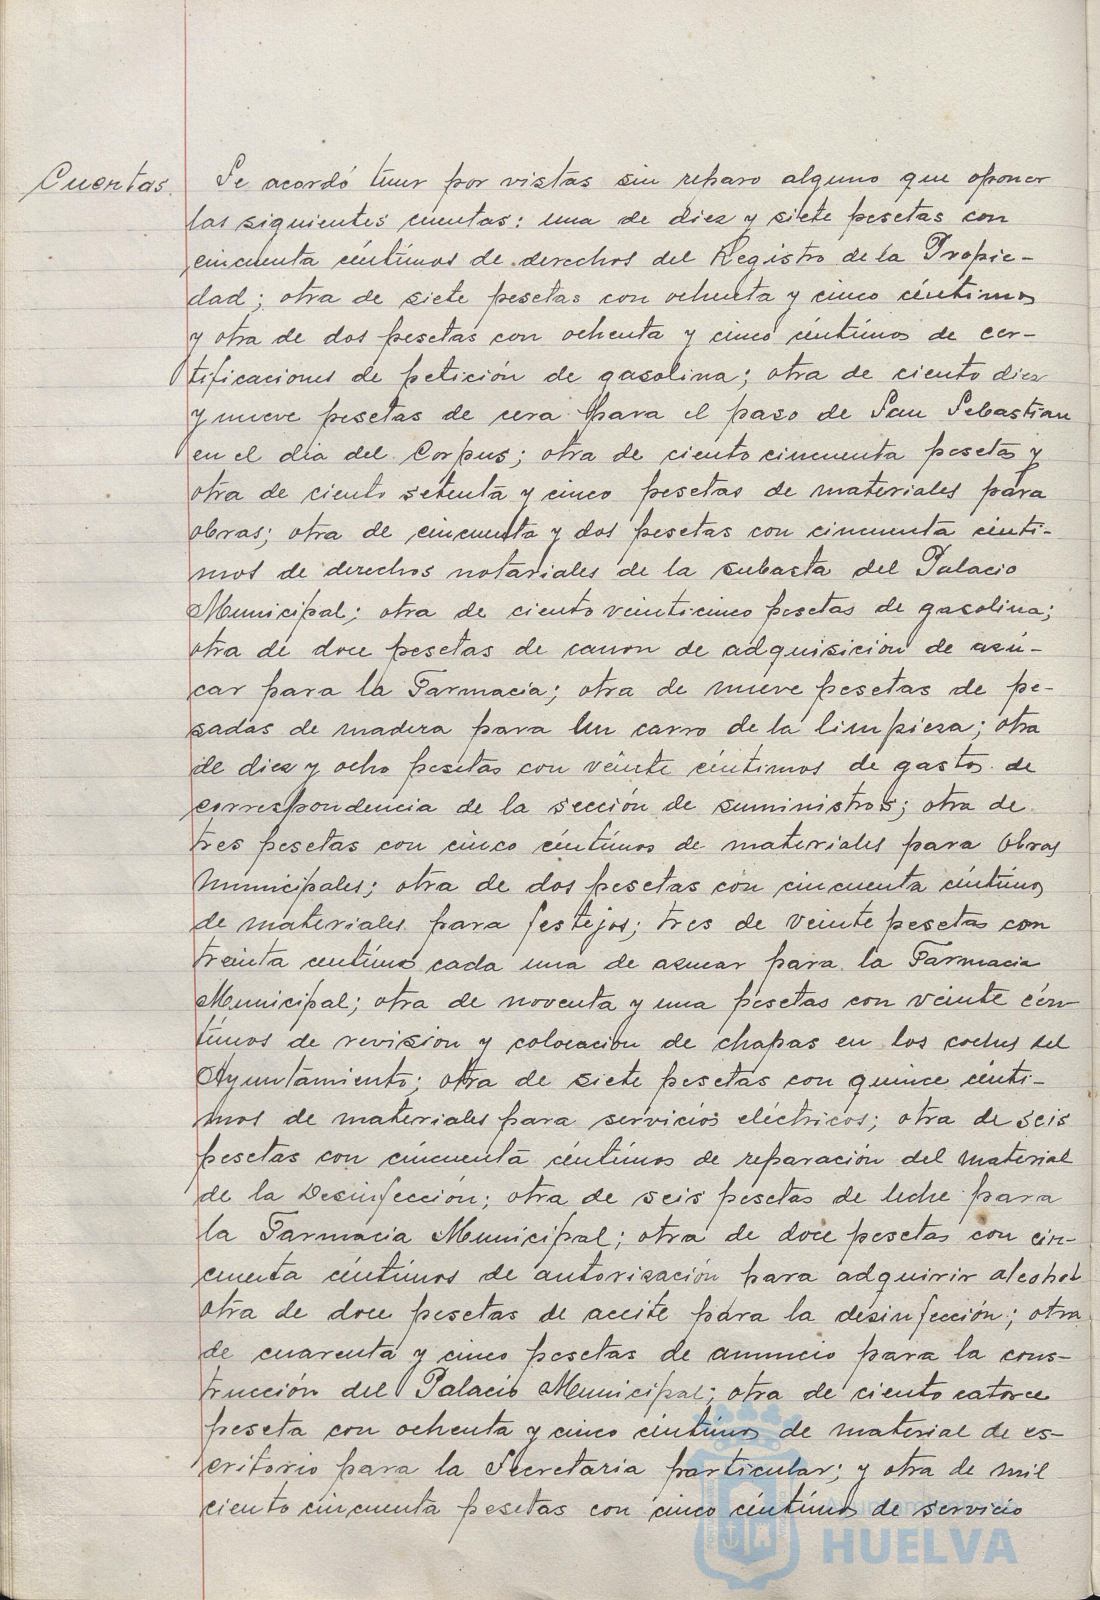 Cuentas. Se acordó tener por vistas sin reparo alguno que oponer
las siguientes cuentas: una de diez y siete pesetas con
cincuenta céntimos de derechos del Registro de la Propie-
dad; otra de siete pesetas con ochenta y cinco céntimos
y otra de dos pesetas con ochenta y cinco céntimos de cer-
tificaciones de petición de gasolina; otra de ciento diez
y nueve pesetas de cera para el paso de San Sebastian
en el dia del Corpus; otra de ciento cincuenta pesetas y
otra de ciento setenta y cinco pesetas de materiales para
obras; otra de cincuenta y dos pesetas con cincuenta cénti-
mos de derechos notariales de la subasta del Palacio
Municipal; otra de ciento veinticinco pesetas de gasolina;
otra de doce pesetas de canon de adquisición de azú-
car para la Farmacia; otra de nueve pesetas de pe-
sadas de madera para un carro de la limpieza; otra
de diez y ocho pesetas con veinte céntimos de gastos de
correspondencia de la sección de suministros; otra de
tres pesetas con cinco céntimos de materiales para obras
municipales; otra de dos pesetas con cincuenta céntimos
de materiales para festejos; tres de veinte pesetas con
treinta centimos cada una de azucar para la Farmacia
Municipal; otra de noventa y una pesetas con veinte cén-
timos de revision y colocacion de chapas en los coches del
Ayuntamiento; otra de siete pesetas con quince cénti-
mos de materiales para servicios eléctricos; otra de seis
pesetas con cincuenta céntimos de reparación del material
de la Desinfección; otra de seis pesetas de leche para
la Farmacia Municipal; otra de doce pesetas con cin-
cuenta céntimos de autorización para adquirir alcohol
otra de doce pesetas de aceite para la desinfección; otra
de cuarenta y cinco pesetas de anuncio para la cons-
trucción del Palacio Municipal; otra de ciento catorce
peseta con ochenta y cinco céntimos de material de es-
critorio para la Secretaria particular; y otra de mil
ciento cincuenta pesetas con cinco céntimos de servicio
Ayuntamiento de
HUELVA